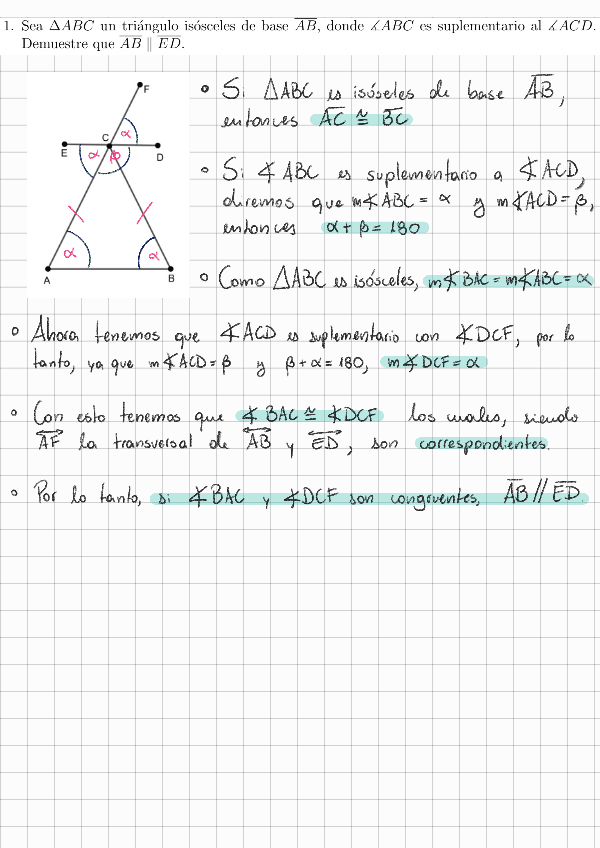 1. Sea ΔABC un triángulo isósceles de base \overline{AB}, donde ∡ABC es suplementario al ∡ACD.
Demuestre que \overline{AB} ∥ \overline{ED}.
F
C
α
E
α
β
D
α
α
A
B
∘ Si △ABC es isóseles de base \overline{AB},
entonces \overline{AC} ≅ \overline{BC}
∘ Si ∡ABC es suplementario a ∡ACD,
diremos que m∡ABC = α y m∡ACD = β,
entonces α + β = 180
∘ Como △ABC es isósceles, m∡BAC = m∡ABC = α
∘ Ahora tenemos que ∡ACD es suplementario con ∡DCF, por lo
tanto, ya que m∡ACD = β y β + α = 180, m∡DCF = α
∘ Con esto tenemos que ∡BAC ≅ ∡DCF los cuales, siendo
\overleftrightarrow{AF} la transversal de \overleftrightarrow{AB} y \overleftrightarrow{ED}, son correspondientes.
∘ Por lo tanto, si ∡BAC y ∡DCF son congruentes, \overline{AB} // \overline{ED}.